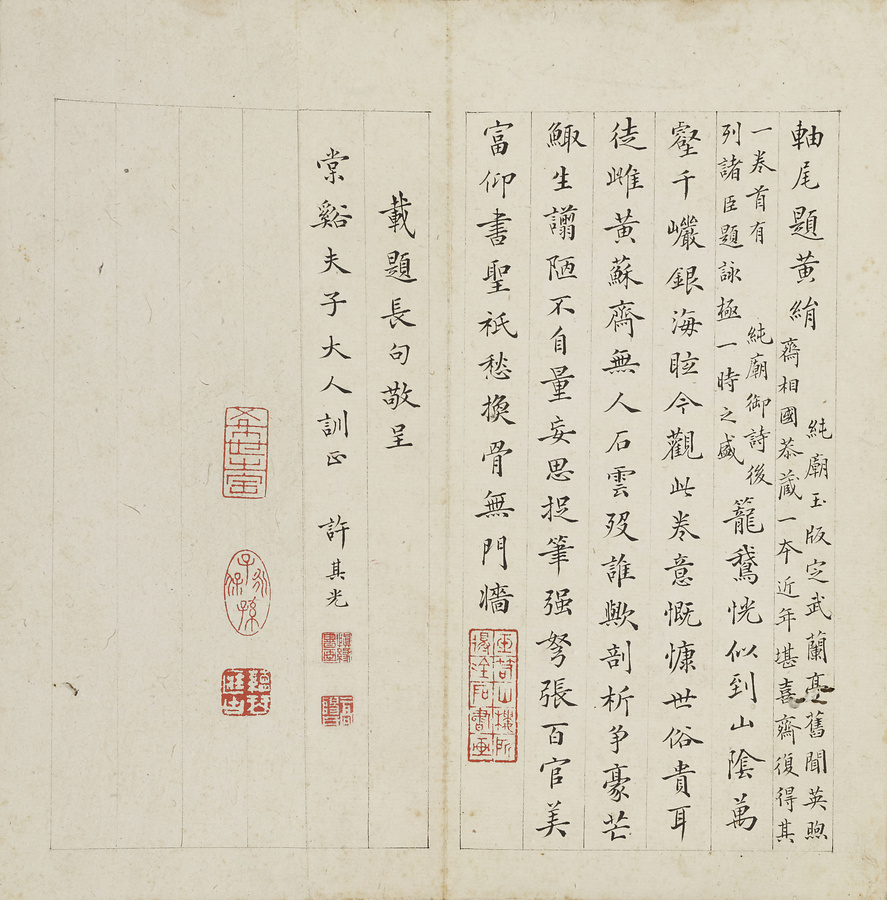 軸尾題黃絹
純廟玉版定武蘭亭舊聞英煦
齋相國恭藏一本近年堪喜齋復得其
一卷首有 純廟御詩後
列諸臣題詠極一時之盛
籠鵝恍似到山陰萬
壑千巗銀海眩今觀此卷意慨慷世俗貴耳
徒雌黃蘇齋無人石雲歿誰歟剖析争豪芒
鯫生謭陋不自量妄思捉筆强弩張百官美
富仰書聖祇愁換骨無門牆
載題長句敬呈
棠谿夫子大人訓正 許其光